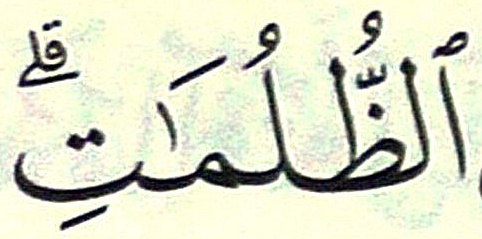 ٱلظُّلُمَٰتِ ۗ